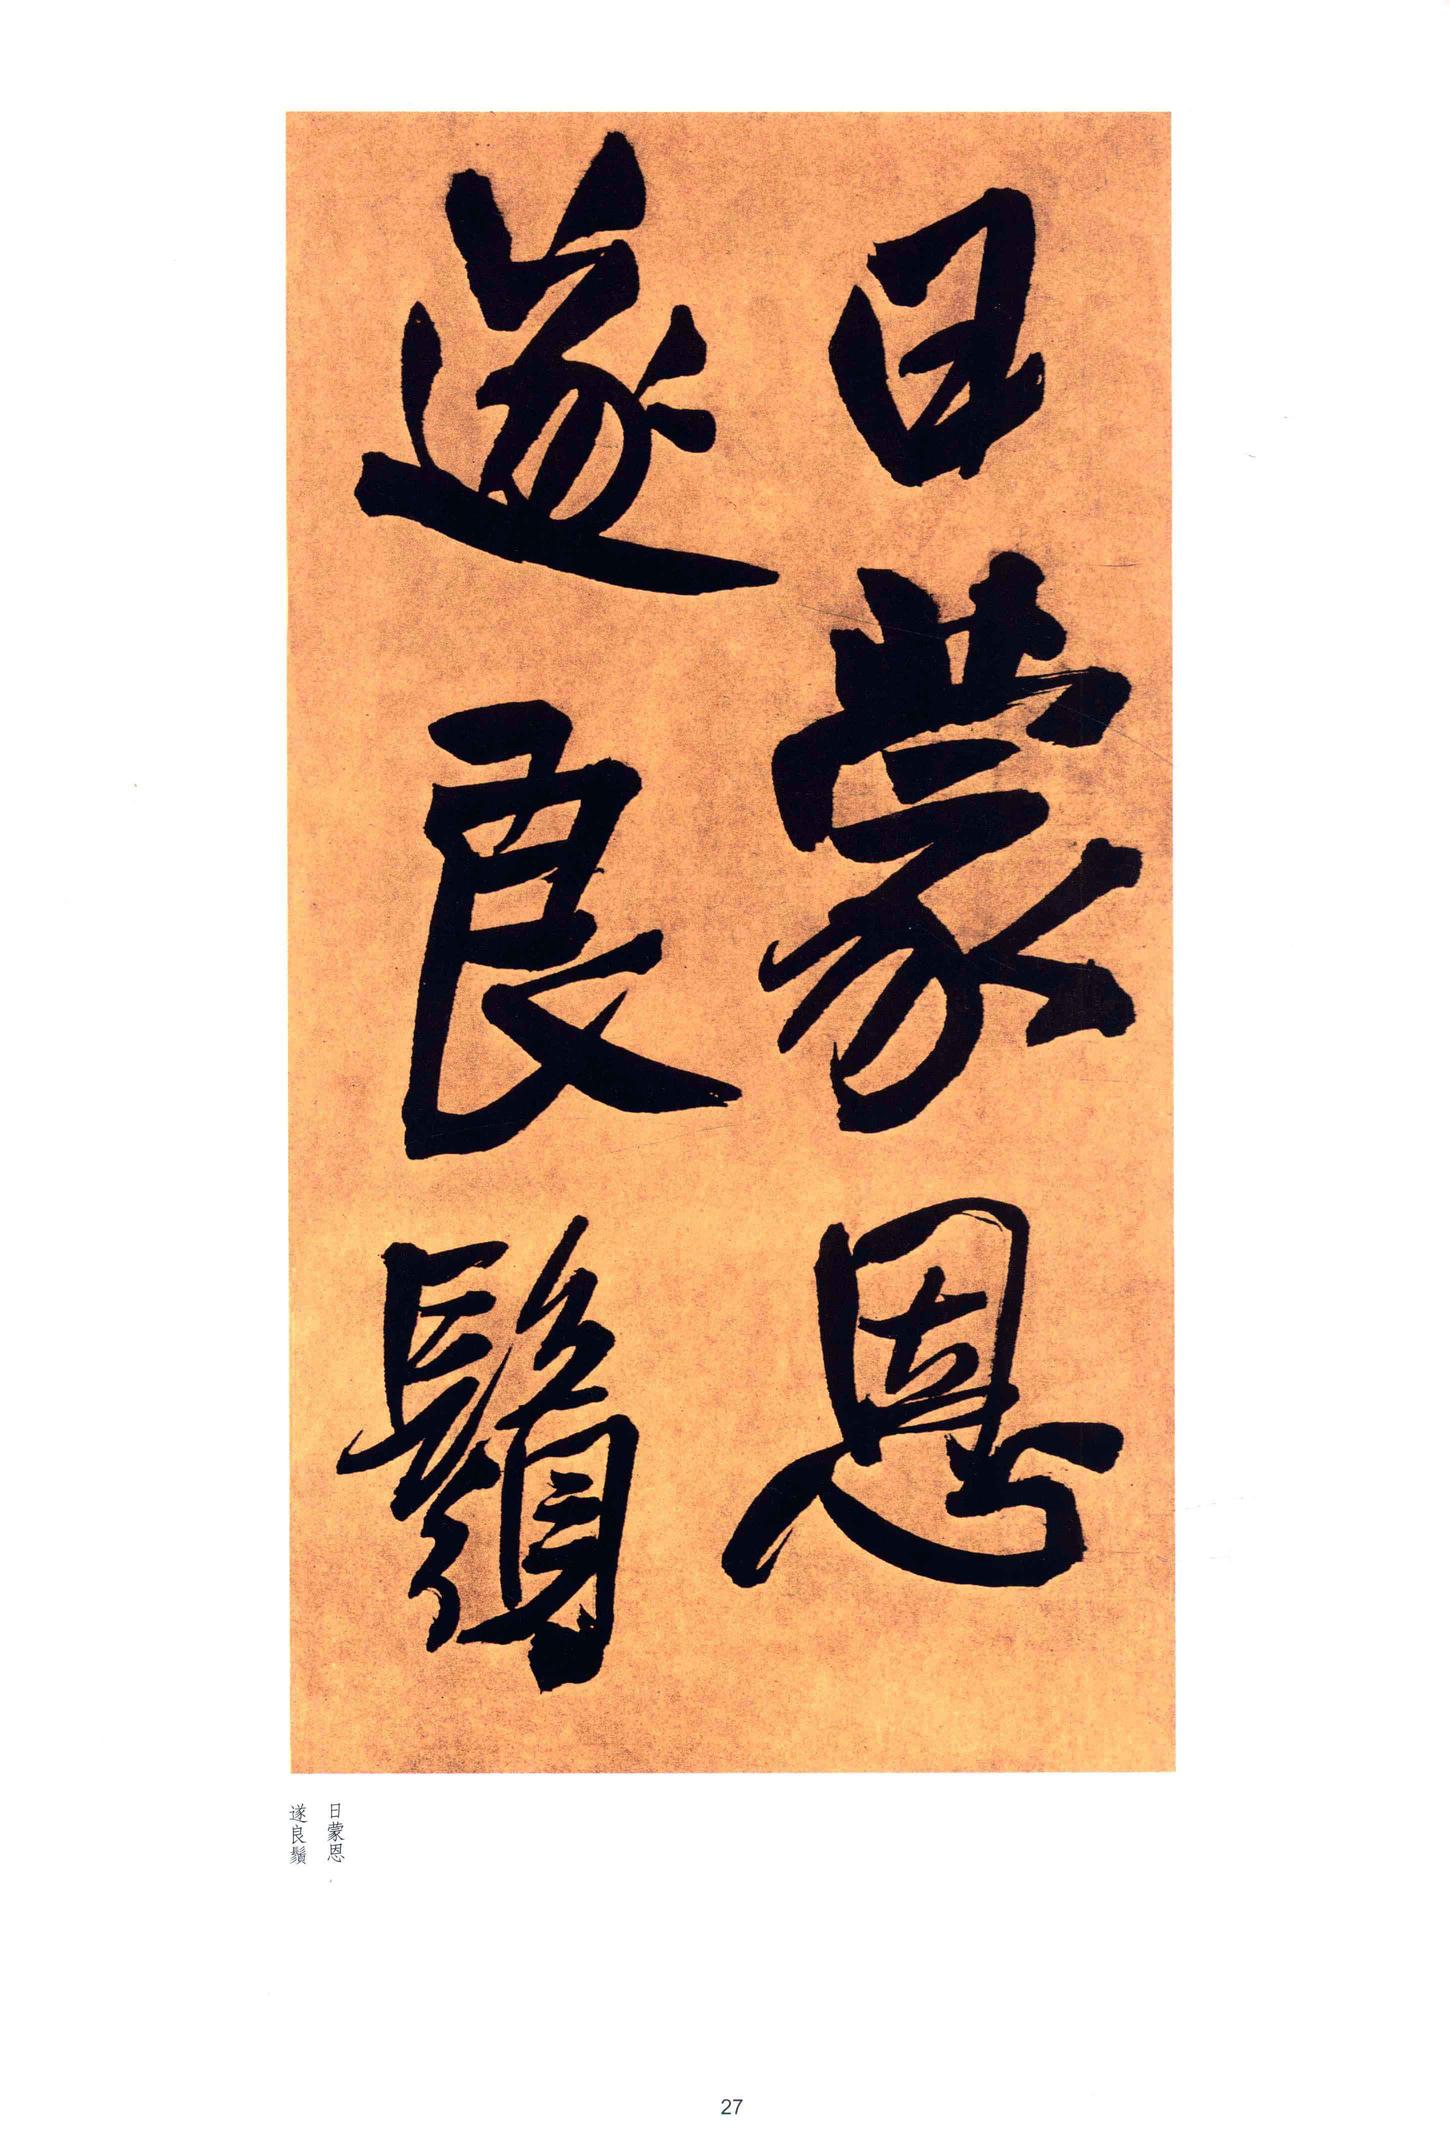 日蒙恩
遂良鬚
日蒙恩
遂良鬚
27